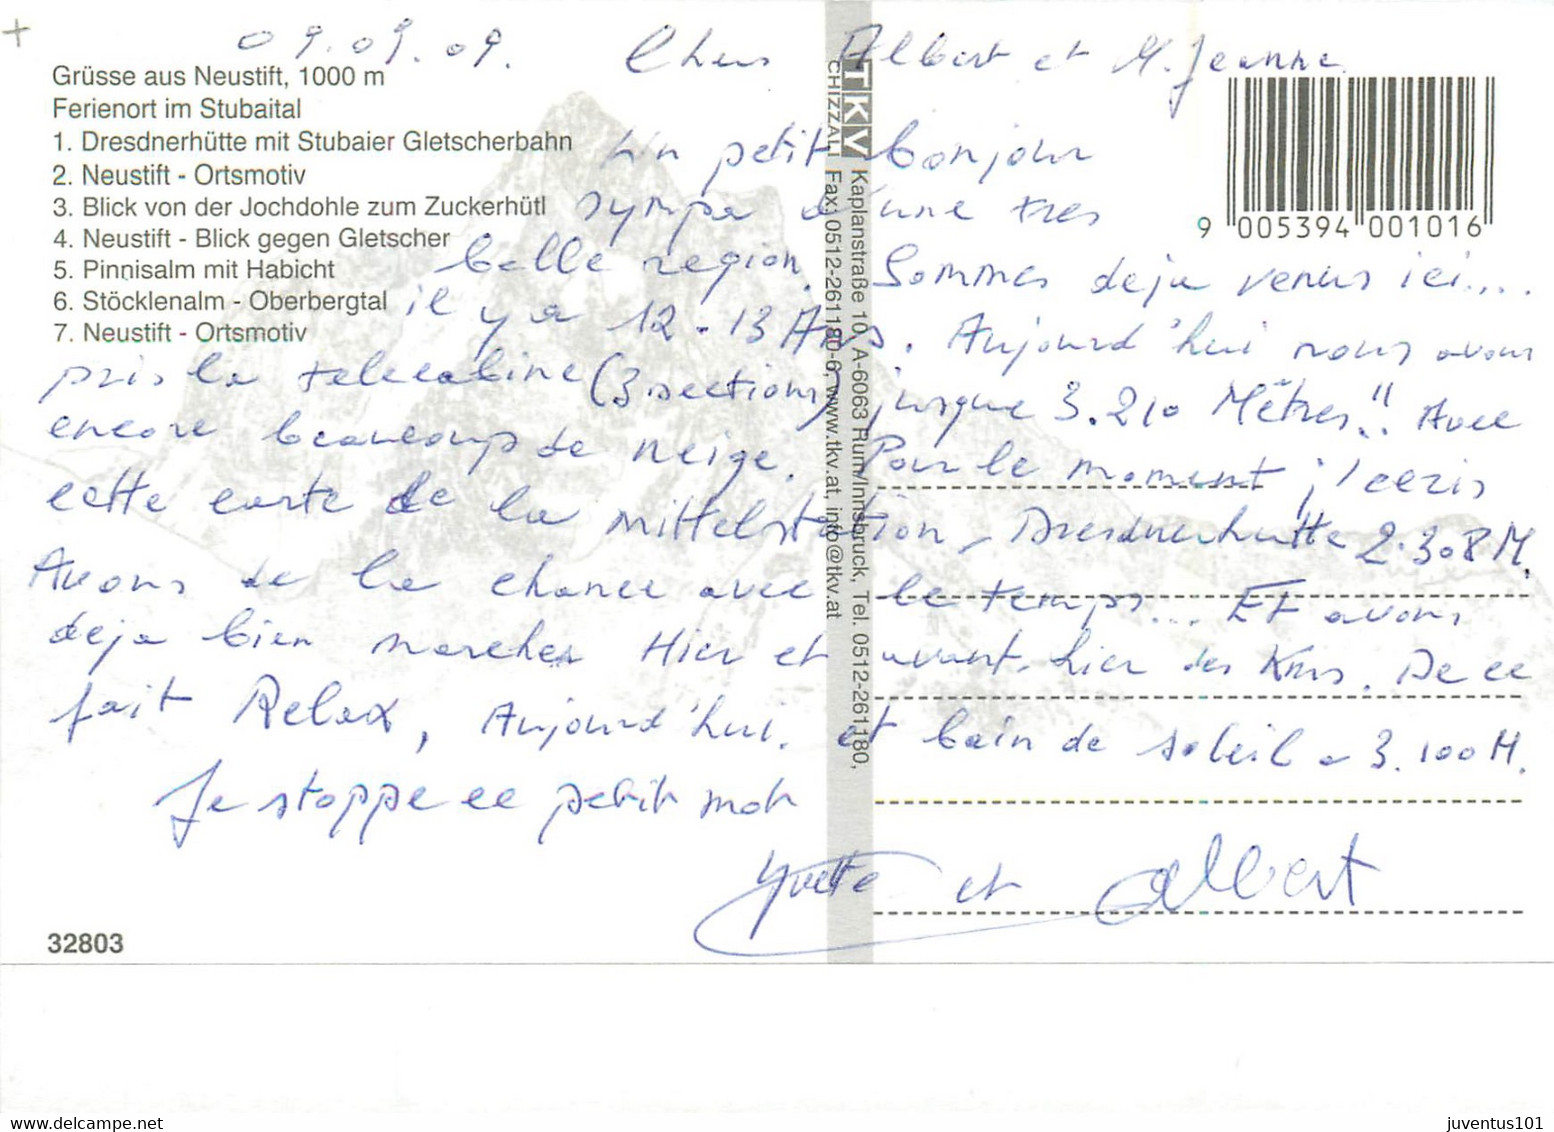 09.09.09. Chers Albert et M. Jeanne
Un petit bonjour
sympa d'une tres
belle region. Sommes deja venus ici....
il y a 12-13 Ans. Aujourd'hui nous avons
pris la telecabine (3 sections) jusque 3.210 Mètres!! Avec
encore beaucoup de neige. Pour le moment j'ecris
cette carte de la Mittelstation - Dresdnerhutte 2.308 M.
Avons de la chance avec le temps... ET avons
deja bien marcher Hier et avant-hier des Kms. De ce
fait Relax, Aujourd'hui. et bain de soleil a 3.100 M.
Je stoppe ce petit mot
Yvette et Albert
Grüsse aus Neustift, 1000 m
Ferienort im Stubaital
1. Dresdnerhütte mit Stubaier Gletscherbahn
2. Neustift - Ortsmotiv
3. Blick von der Jochdohle zum Zuckerhütl
4. Neustift - Blick gegen Gletscher
5. Pinnisalm mit Habicht
6. Stöcklenalm - Oberbergtal
7. Neustift - Ortsmotiv
32803
TKV
CHIZZALI
Kaplanstraße 10, A-6063 Rum/Innsbruck, Tel. 0512-261180,
Fax: 0512-261180-6, www.tkv.at, info@tkv.at
9 005394 001016
www.delcampe.net
juventus101